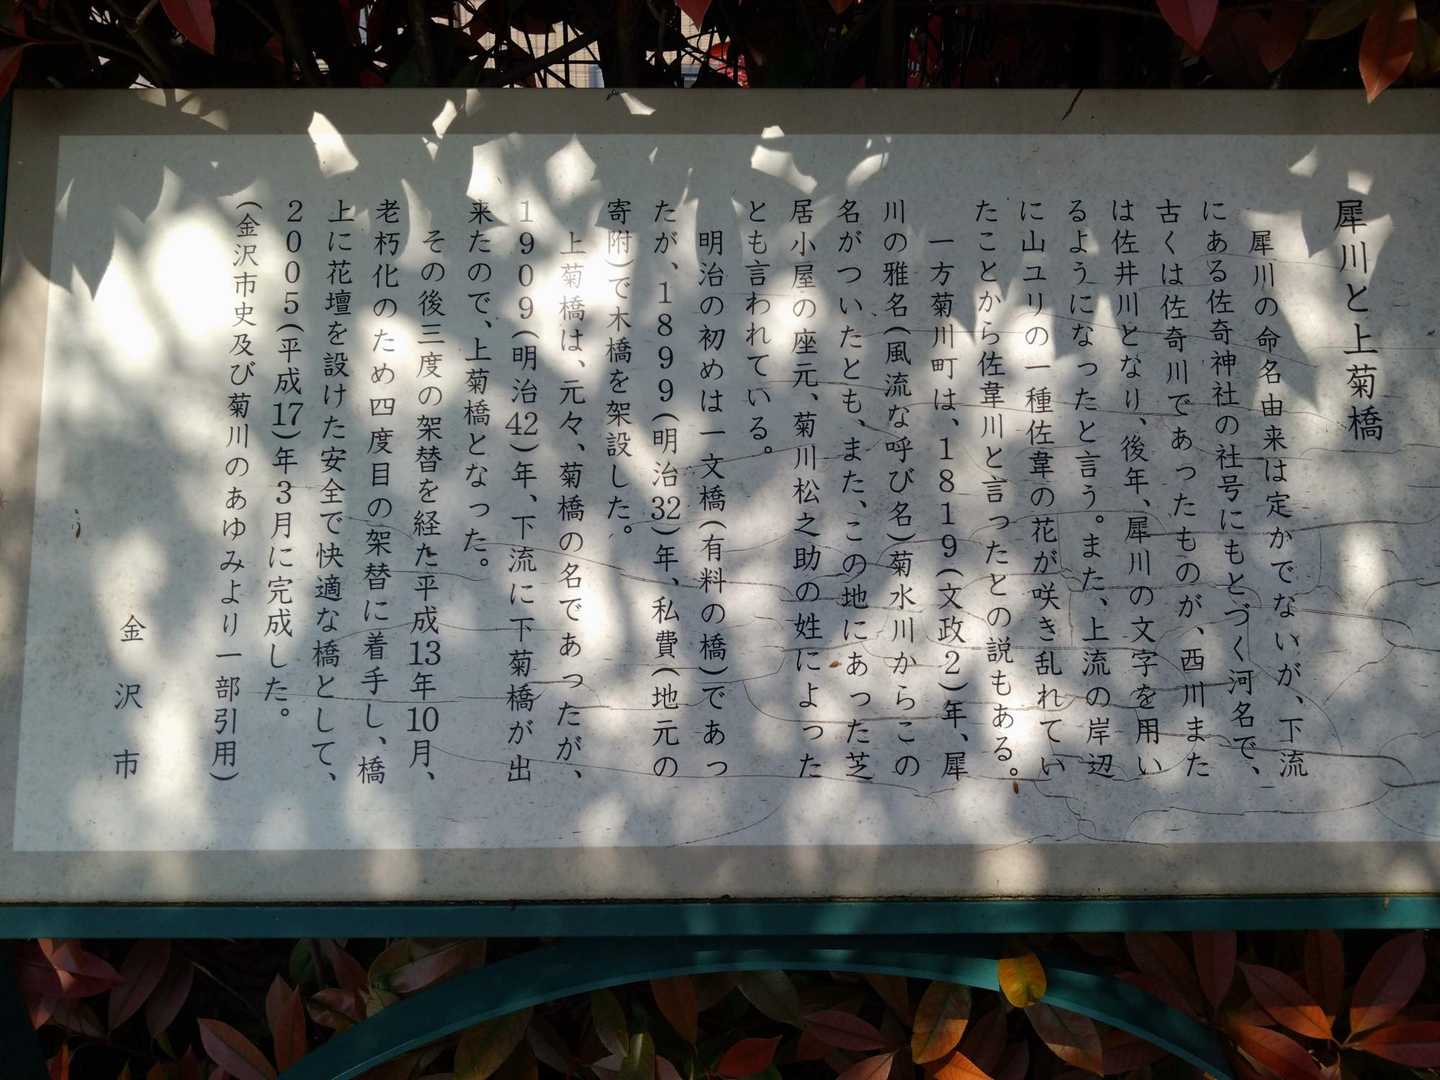 犀川と上菊橋
犀川の命名由来は定かでないが、下流
にある佐奇神社の社号にもとづく河名で、
古くは佐奇川であったものが、西川また
は佐井川となり、後年、犀川の文字を用い
るようになったと言う。また、上流の岸辺
に山ユリの一種佐韋の花が咲き乱れてい
たことから佐韋川と言ったとの説もある。
一方菊川町は、1819(文政2)年、犀
川の雅名(風流な呼び名)菊水川からこの
名がついたとも、また、この地にあった芝
居小屋の座元、菊川松之助の姓によった
とも言われている。
明治の初めは一文橋(有料の橋)であっ
たが、1899(明治32)年、私費(地元の
寄附)で木橋を架設した。
上菊橋は、元々、菊橋の名であったが、
1909(明治42)年、下流に下菊橋が出
来たので、上菊橋となった。
その後三度の架替を経た平成13年10月、
老朽化のため四度目の架替に着手し、橋
上に花壇を設けた安全で快適な橋として、
2005(平成17)年3月に完成した。
(金沢市史及び菊川のあゆみより一部引用)
金沢市